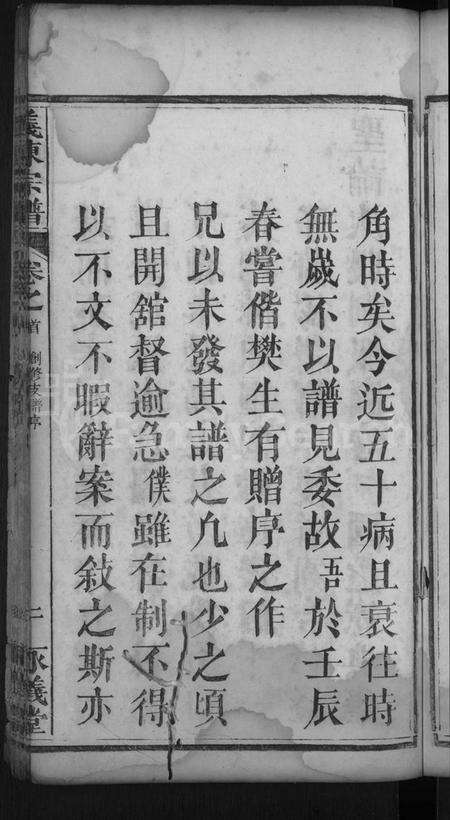 角時矣今近五十病且衰往時
無歲不以譜見委故吾於壬辰
春嘗偕樊生有贈序之作
兄以未發其譜之凢也少之頃
且開舘督逾急僕雖在制不得
以不文不暇辭案而敍之斯亦
義東宗譜
卷之首
創修支譜序
二
承義堂